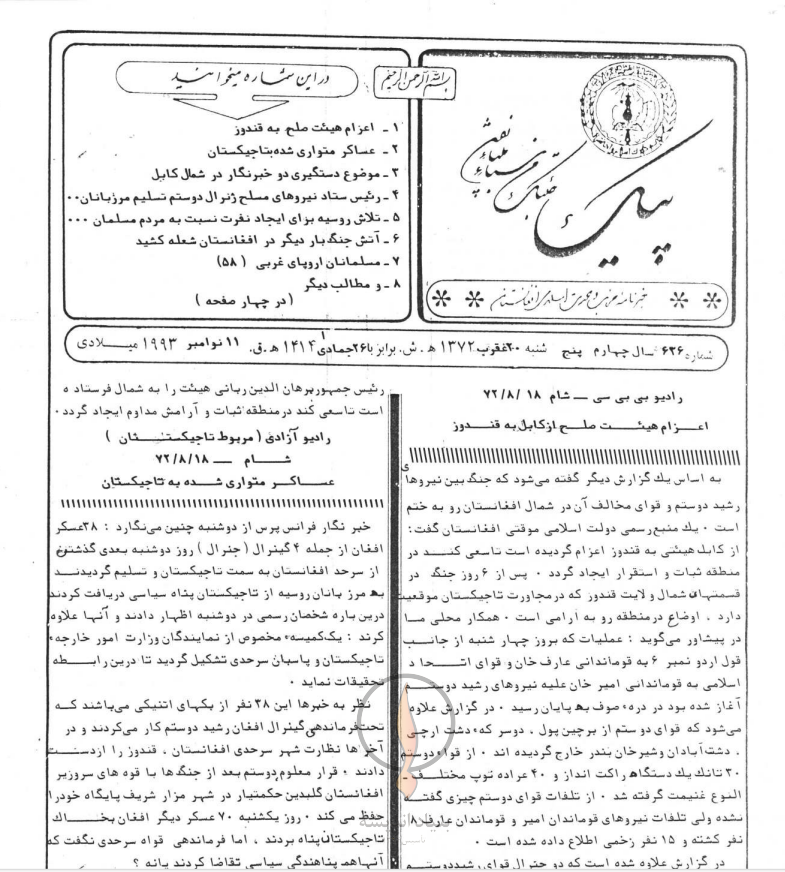 بسم الله الرحمن الرحیم
پیک
خبرنامه حزب وحدت اسلامی افغانستان
در این شماره میخوانید
۱ ـ اعزام هیئت صلح به قندوز
۲ ـ عساکر متواری شده بتاجیکستان
۳ ـ موضوع دستگیری دو خبرنگار در شمال کابل
۴ ـ رئیس ستاد نیروهای مسلح ژنرال دوستم تسلیم مرزبانان۰۰
۵ ـ تلاش روسیه برای ایجاد نفرت نسبت به مردم مسلمان ۰۰۰
۶ ـ آتش جنگ بار دیگر در افغانستان شعله کشید
۷ ـ مسلمانان اروپای غربی ( ۵۸ )
۸ ـ و مطالب دیگر
( در چهار صفحه )
شماره ۶۳۶ سال چهارم پنج شنبه ۲۰عقرب ۱۳۷۲ ه . ش. برابر با ۲۶جمادی ۱ ۱۴۱۴ ه .ق. ۱۱ نوامبر ۱۹۹۳ میلادی
رادیو بی بی سی ـ شام ۱۸ /۷۲/۸
اعزام هیئت صلح از کابل به قندوز
به اساس یك گزارش دیگر گفته می‌شود که جنگ بین نیروهای
رشید دوستم و قوای مخالف آن در شمال افغانستان رو به ختم
است ۰ یك منبع رسمی دولت اسلامی موقتی افغانستان گفت:
از کابل هیئتی به قندوز اعزام گردیده است تا سعی کنند در
منطقه ثبات و استقرار ایجاد گردد ۰ پس از ۶ روز جنگ در
قسمتهای شمال ولایت قندوز که در مجاورت تاجیکستان موقعیت
دارد ، اوضاع در منطقه رو به آرامی است ۰ همکار محلی ما
در پیشاور می‌گوید : عملیات که بروز چهار شنبه از جانب
قول اردو نمبر ۶ به قوماندانی عارف خان و قوای اتحاد
اسلامی به قوماندانی امیر خان علیه نیروهای رشید دوستم
آغاز شده بود در دره صوف به پایان رسید ۰ در گزارش علاوه
می‌شود که قوای دوستم از برچین پول ، دوسر که، دشت ارچی
، دشت آبادان و شیرخان بندر خارج گردیده اند ۰ از قوا دوستم
۳۰ تانك یك دستگاه راکت انداز و ۴۰ عراده توپ مختلف
النوع غنیمت گرفته شد ۰ از تلفات قوای دوستم چیزی گفته
نشده ولی تلفات نیروهای قوماندان امیر و قوماندان عارف ۸
نفر کشته و ۱۵ نفر زخمی اطلاع داده شده است ۰
در گزارش علاوه شده است که دو جنرال قوای رشید دوستم
رئیس جمهور برهان الدین ربانی هیئت را به شمال فرستاده
است تا سعی کند در منطقه ثبات و آرامش مداوم ایجاد گردد۰
رادیو آزادی ( مربوط تاجیکستان )
شام ـــ ۷۲/۸/۱۸
عساکر متواری شده به تاجیکستان
خبر نگار فرانس پرس از دوشنبه چنین می‌نگارد : ۳۸عسکر
افغان از جمله ۴ گینرال ( جنرال ) روز دوشنبه بعدی گذشتن
از سرحد افغانستان به سمت تاجیکستان و تسلیم گردیدند
به مرز بانان روسیه از تاجیکستان پناه سیاسی دریافت کردند
درین باره شخصان رسمی در دوشنبه اظهار دادند و آنها علاوه
کرند : یک‌کمیسه مخصوص از نمایندگان وزارت امور خارجه
تاجیکستان و پاسبان سرحدی تشکیل گردید تا درین رابطه
تحقیقات نماید ۰
نظر به خبرها این ۳۸ نفر از بکهای اتنیکی می‌باشند که
تحت‌فرماندهی گینرال افغان رشید دوستم کار می‌کردند و در
آخر ها نظارت شهر سرحدی افغانستان ، قندوز را از دست
دادند ، قرار معلوم دوستم بعد از جنگها با قوه های سروزیر
افغانستان گلبدین حکمتیار در شهر مزار شریف پایگاه خودرا
حفظ می کند ۰ روز یکشنبه ۷۰ عسکر دیگر افغان بخاك
تاجیکستان‌پناه بردند ، اما فرماندهی قواه سرحدی نگفت که
آنها هم پناهندگی سیاسی تقاضا کردند یانه ؟